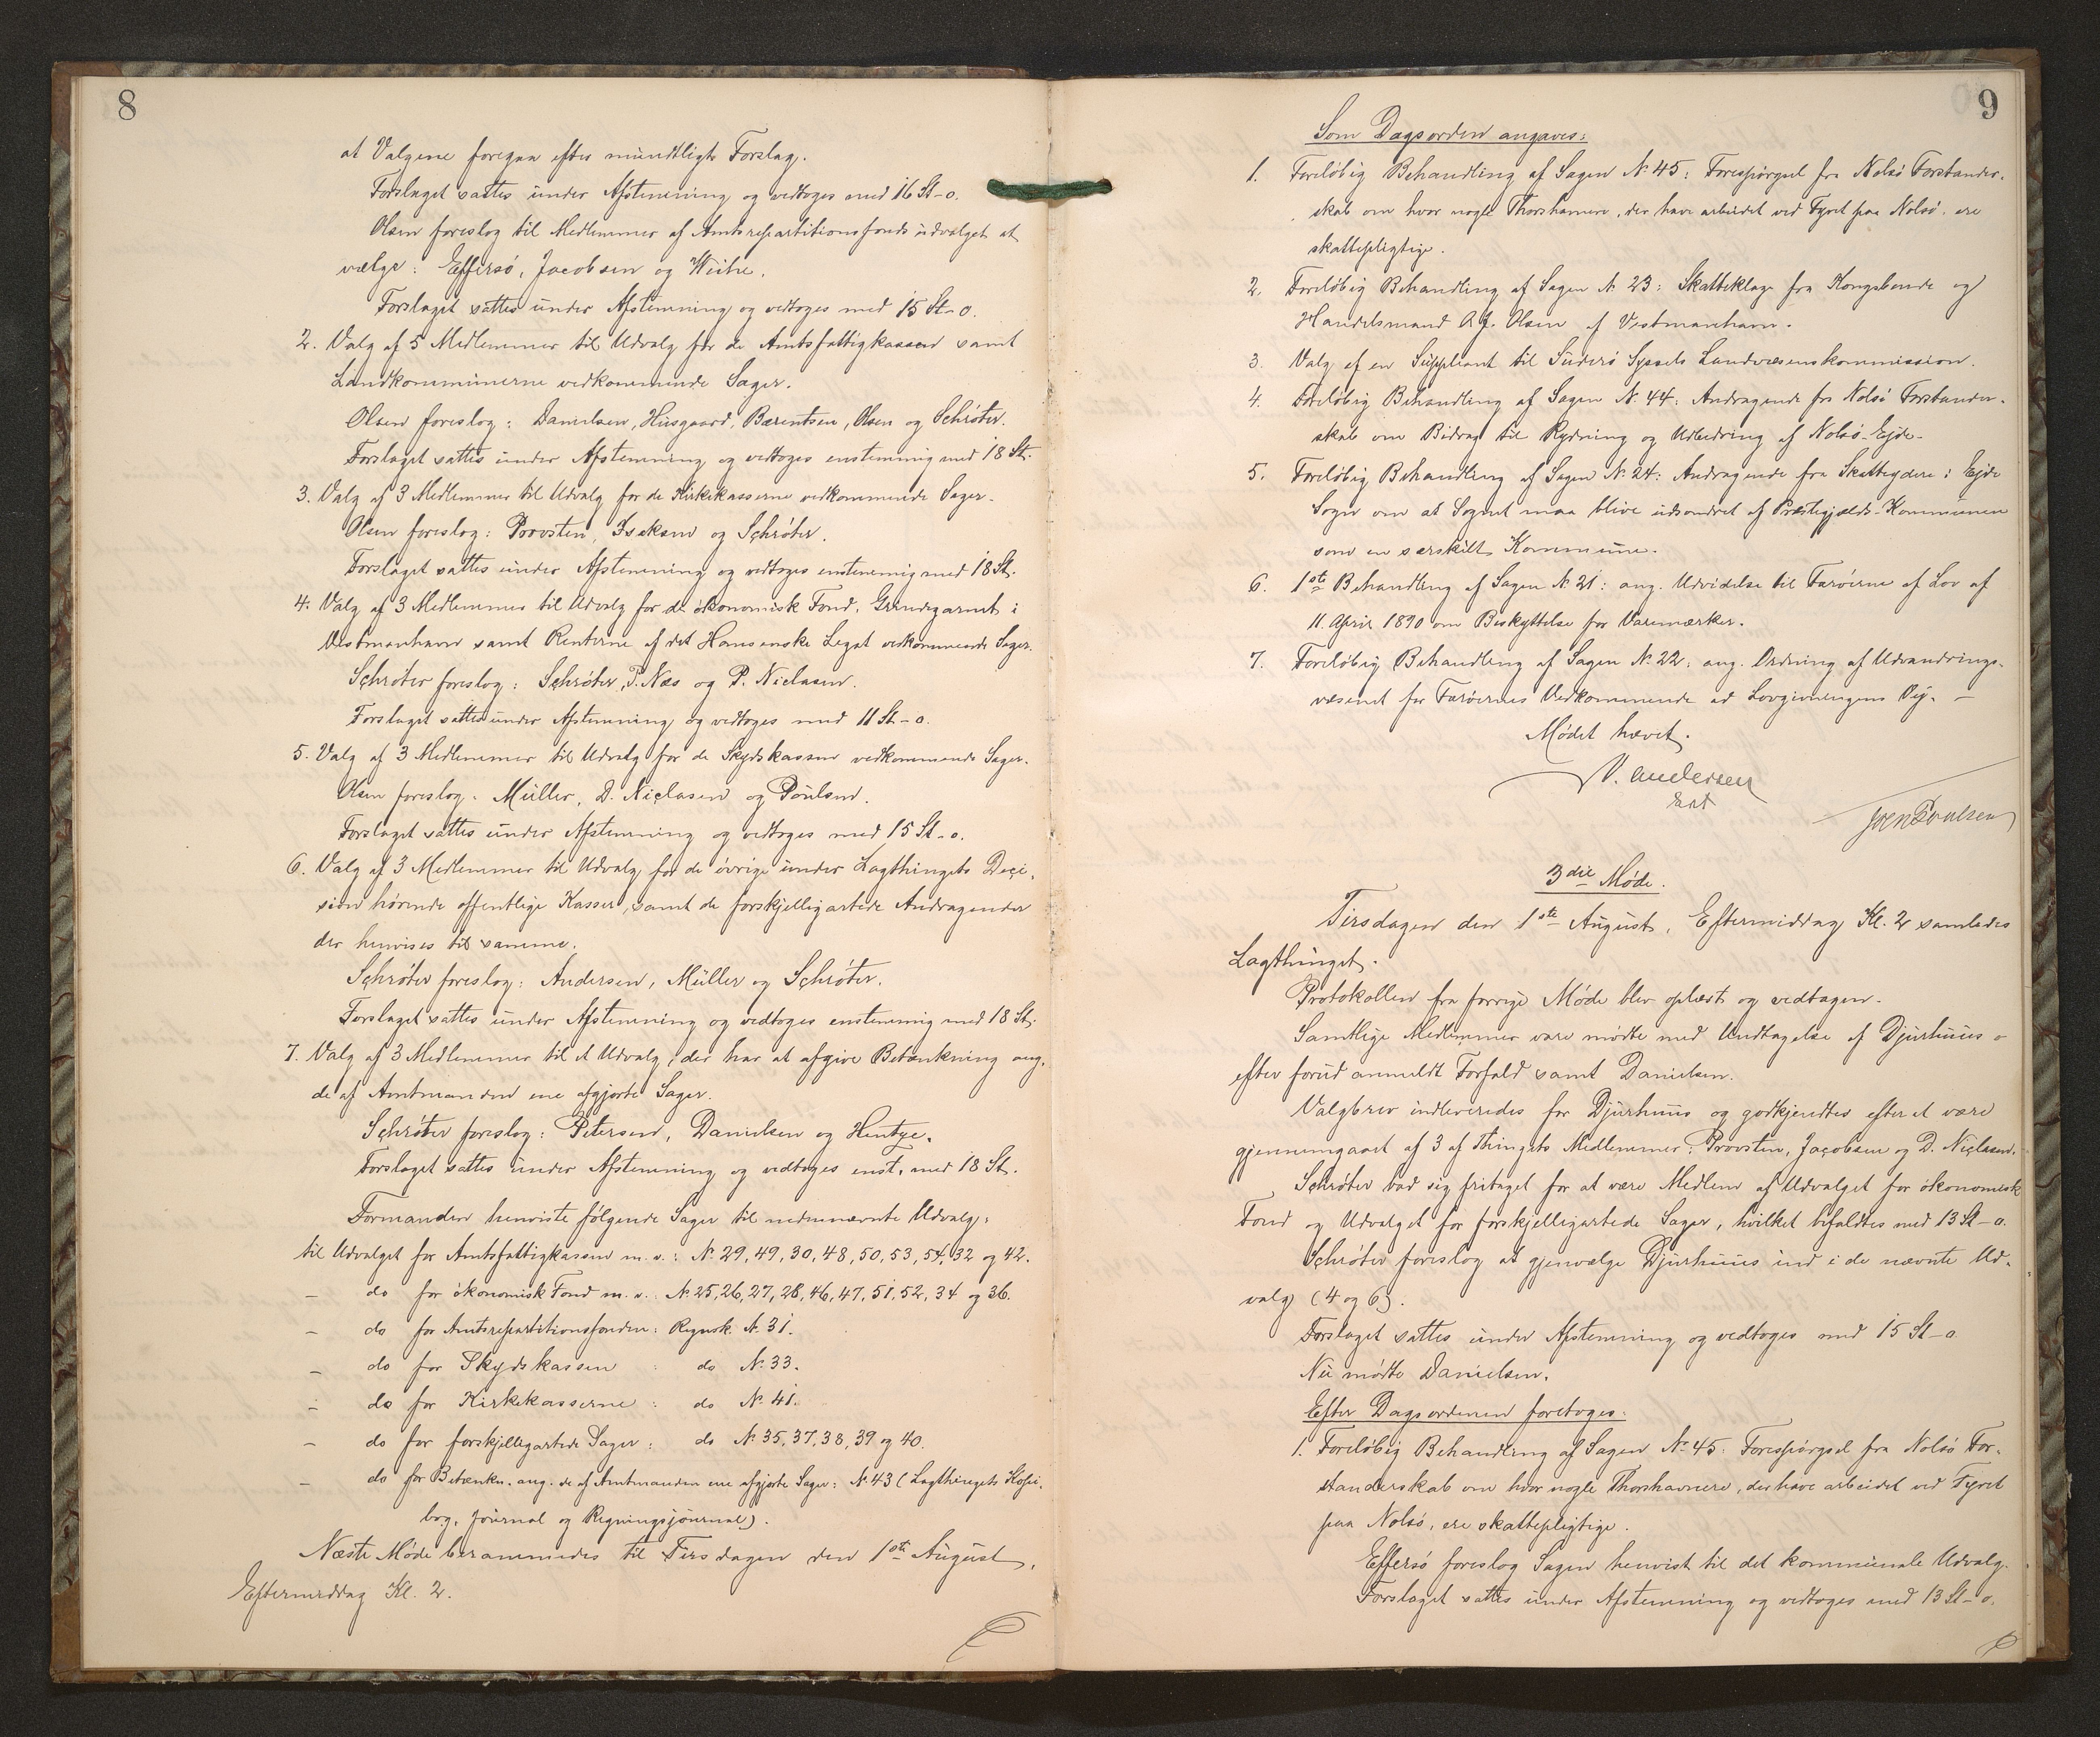 8
at Valgene foregaa efter mundtligt Forslag.
Forslaget sattes under Afstemning og vedtoges med 16 St-0.
Olsen foreslog til Medlemmer af Amtsrepartitionsfonds udvalget at
vælge: Effersö, Jacobsen og Weihe.
Forslaget sattes under Afstemning og vedtoges med 15 St-0.
2. Valg af 5 Medlemmer til Udvalg for de Amtsfattigkassen samt
Landkommunerne vedkommende Sager.
Olsen foreslog: Danielsen, Husgaard, Bærentsen, Olsen og Schröter.
Forslaget sattes under Afstemning og vedtoges enstemmig med 18 St.
3. Valg af 3 Medlemmer til Udvalg for de Kirkekasserne vedkommende Sager.
Olsen foreslog: Provsten, Isaksen og Schröter.
Forslaget sattes under Afstemning og vedtoges enstemmig med 18 St.
4. Valg af 3 Medlemmer til Udvalg for de ökonomisk Fond, Grindegarnet i
Vestmanhavn samt Renterne af det Hansenske Legat vedkommende Sager.
Schröter foreslog: Schröter, P. Næs og P. Niclasen.
Forslaget sattes under Afstemning og vedtoges med 11 St-0.
5. Valg af 3 Medlemmer til Udvalg for de Skydskassen vedkommende Sager.
Olsen foreslog: Müller, D. Niclasen og Poulsen.
Forslaget sattes under Afstemning og vedtoges med 15 St-0.
6. Valg af 3 Medlemmer til Udvalg for de övrige under Lagthingets Deci-
sion hörende offentlige Kasser, samt de forskjelligartede Andragender
der henvises til samme.
Schröter foreslog: Andersen, Müller og Schröter.
Forslaget sattes under Afstemning og vedtoges enstemmig med 18 St.
7. Valg af 3 Medlemmer til et Udvalg, der har at afgive Betænkning ang.
de af Amtmanden ene afgjorte Sager.
Schröter foreslog: Petersen, Danielsen og Hentze.
Forslaget sattes under Afstemning og vedtoges enst. med 18 St.
Formanden henviste fölgende Sager til nedennævnte Udvalg:
til Udvalget for Amtsfattigkassen m. v.: No 29, 49, 30, 48, 50, 53, 54, 32 og 42.
- do for ökonomisk Fond m. v. No 25, 26, 27, 28, 46, 47, 51, 52, 34 og 36.
- do for Amtsrepartitionsfonden: Regnsk. No 31.
- do for Skydskassen : do No 33.
- do for Kirkekasserne : do No 41.
- do for forskjelligartede Sager: do No 35, 37, 38, 39 og 40.
- do for Betænkn. ang. de af Amtmanden ene afgjorte Sager: No 43 (Lagthingets Kopi-
bog, Journal og Regningsjournal).
Næste Möde berammedes til Tirsdagen den 1ste August,
Eftermiddag Kl. 2.
9
Som Dagsorden angaves:
1. Forelöbig Behandling af Sagen No 45: Forespörgsel fra Nolsö Forstander-
skab om hvor nogle Thorshavnere, der have arbeidet ved Fyret paa Nolsö, ere
skattepligtige.
2. Forelöbig Behandling af Sagen No 23: Skatteklage fra Kongsbonde og
Handelsmand O. J. Olsen af Vestmanhavn.
3. Valg af en Suppleant til Suderö Syssels Landvæsenskommission.
4. Forelöbig Behandling af Sagen No 44: Andragende fra Nolsö Forstander-
skab om Bidrag til Rydning og Udbedring af Nolsö-Ejde.
5. Forelöbig Behandling af Sagen No 24: Andragende fra Skatteydere i Ejde
Sogn om at Sognet maa blive udsondret af Præstegjælds-Kommunen
som en særskilt Kommune.
6. 1ste Behandling af Sagen No 21: ang. Udvidelse til Færöerne af Lov af
11. April 1890 om Beskyttelse for Varemærker.
7. Forelöbig Behandling af Sagen No 22: ang. Ordning af Udvandrings-
væsenet for Færöernes Vedkommende ad Lovgivningens Vej. -
Mödet hævet.
V. Andersen
Joen Poulsen
3die Möde.
Tirsdagen den 1ste August, Eftermiddag Kl. 2 samledes
Lagthinget.
Protokollen fra forrige Möde blev oplæst og vedtagen.
Samtlige Medlemmer vare mödte med Undtagelse af Djurhuus
efter forud anmeldt Forfald samt Danielsen.
Valgbrev indleveredes for Djurhuus og godkjendtes efter at være
gjennemgaaet af 3 af Thingets Medlemmer: Provsten, Jacobsen og D. Niclasen.
Schröter bad sig fritaget for at være Medlem af Udvalget for ökonomisk
Fond og Udvalget for forskjelligartede Sager, hvilket bifaldtes med 13 St-0.
Schröter foreslog at gjenvælge Djurhuus ind i de nævnte Ud-
valg (4 og 6).
Forslaget sattes under Afstemning og vedtoges med 15 St-0
Nu mödte Danielsen.
Efter Dagsordenen foretoges:
1. Forelöbig Behandling af Sagen No 45: Forespörgsel fra Nolsö For-
standerskab om hvor nogle Thorshavnere, der have arbeidet ved Fyret
paa Nolsö, ere skattepligtige.
Effersö foreslog Sagen henvist til det kommunale Udvalg.
Forslaget sattes under Afstemning og vedtoges med 13 St-0.